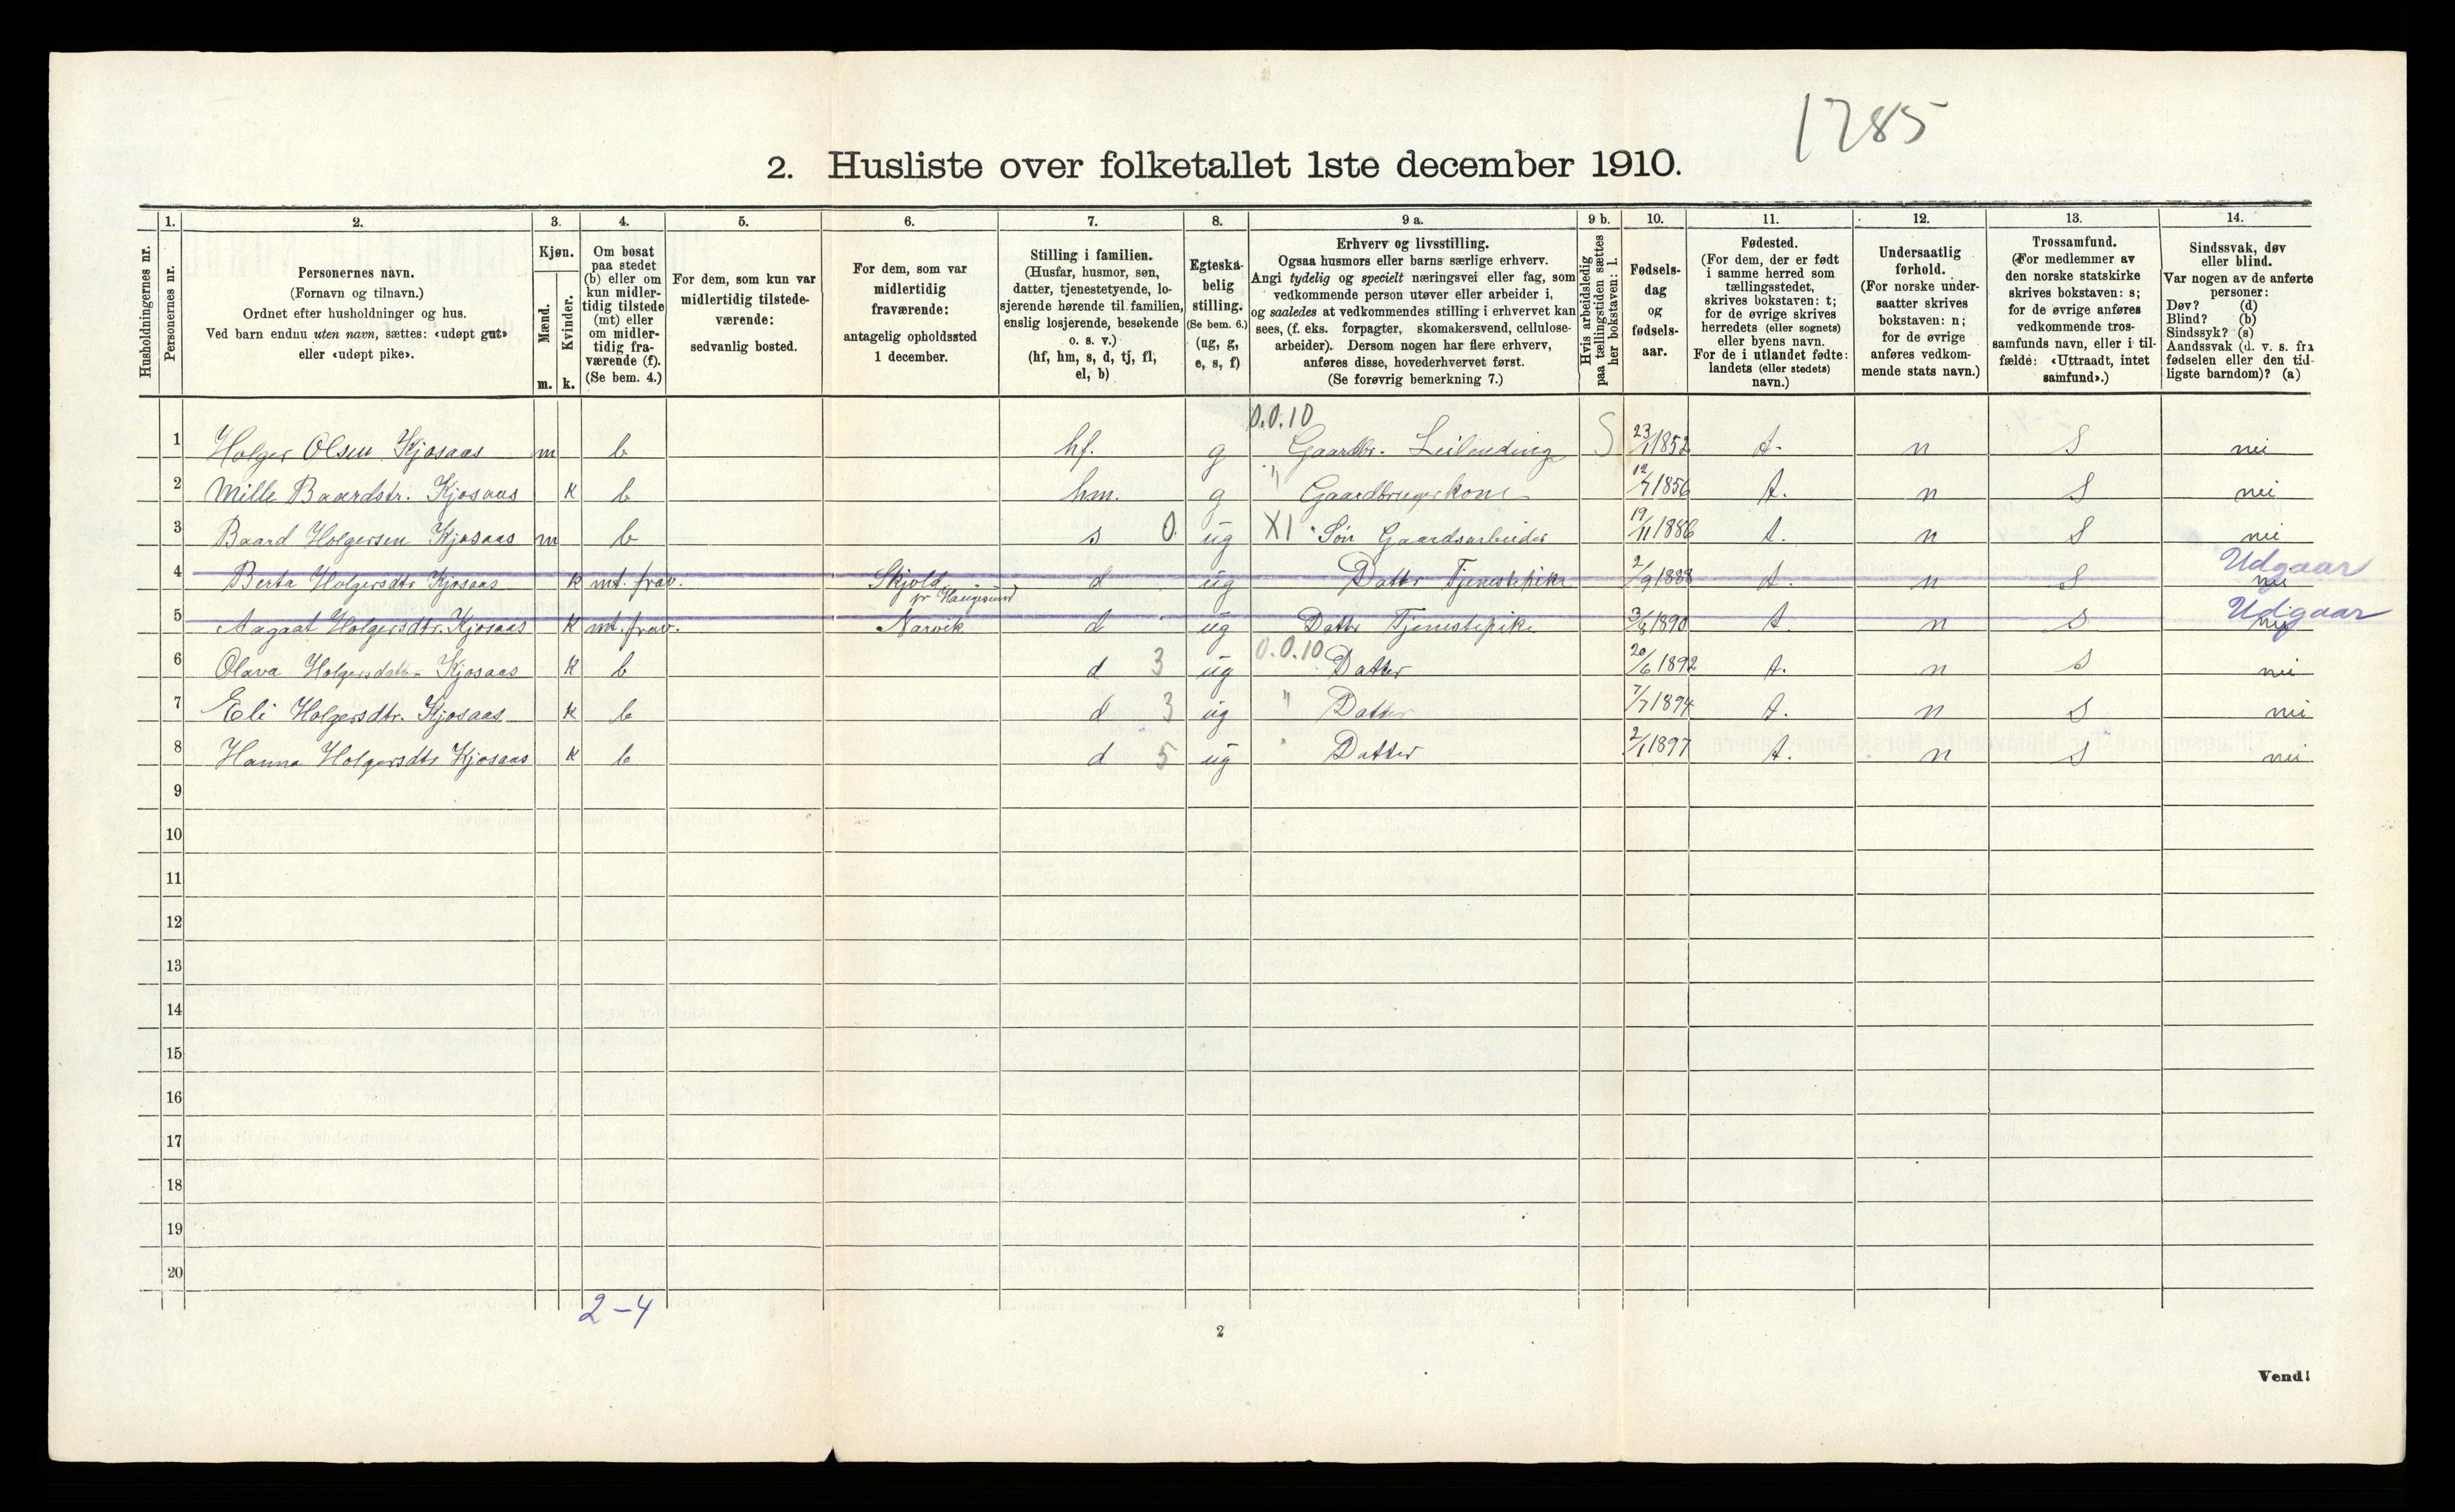 1285
2. Husliste over folketallet 1ste december 1910.
Husholdningernes nr.
1. Personernes nr.
2. Personernes navn.
(Fornavn og tilnavn.)
Ordnet efter husholdninger og hus.
Ved barn endnu uten navn, sættes: «udøpt gut»
eller «udøpt pike».
3. Kjøn.
Mænd. m.
Kvinder. k.
4. Om bosat
paa stedet
(b) eller om
kun midler-
tidig tilstede
(mt) eller
om midler-
tidig fra-
værende (f).
(Se bem. 4.)
5. For dem, som kun var
midlertidig tilstede-
værende:
sedvanlig bosted.
6. For dem, som var
midlertidig
fraværende:
antagelig opholdssted
1 december.
7. Stilling i familien.
(Husfar, husmor, søn,
datter, tjenestetyende, lo-
sjerende hørende til familien,
enslig losjerende, besøkende
o. s. v.)
(hf, hm, s, d, tj, fl,
el, b)
8. Egteska-
belig
stilling.
(Se bem. 6.)
(ug, g,
e, s, f)
9 a. Erhverv og livsstilling.
Ogsaa husmors eller barns særlige erhverv.
Angi tydelig og specielt næringsvei eller fag, som
vedkommende person utøver eller arbeider i,
og saaledes at vedkommendes stilling i erhvervet kan
sees, (f. eks. forpagter, skomakersvend, cellulose-
arbeider). Dersom nogen har flere erhverv,
anføres disse, hovederhvervet først.
(Se forøvrig bemerkning 7.)
9 b. Hvis arbeidsledig
paa tællingstiden sættes
her bokstaven: l.
10. Fødsels-
dag
og
fødsels-
aar.
11. Fødested.
(For dem, der er født
i samme herred som
tællingsstedet,
skrives bokstaven: t;
for de øvrige skrives
herredets (eller sognets)
eller byens navn.
For de i utlandet fødte:
landets (eller stedets)
navn.)
12. Undersaatlig
forhold.
(For norske under-
saatter skrives
bokstaven: n;
for de øvrige
anføres vedkom-
mende stats navn.)
13. Trossamfund.
(For medlemmer av
den norske statskirke
skrives bokstaven: s;
for de øvrige anføres
vedkommende tros-
samfunds navn, eller i til-
fælde: «Uttraadt, intet
samfund».)
14. Sindssvak, døv
eller blind.
Var nogen av de anførte
personer:
Døv? (d)
Blind? (b)
Sindssyk? (s)
Aandssvak (d. v. s. fra
fødselen eller den tid-
ligste barndom)? (a)
0.0.10
1 Holger Olsen Kjosaas m b hf. g Gaardbr. Leilending S 23/1 1852 t. n S nei
2 Mille Baardstr. Kjosaas k b hm. g " Gaardbrugerkone 12/7 1856 t. n S nei
3 Baard Holgersen Kjosaas m b s 0 ug X1 Søn Gaardsarbeider 19/11 1886 t. n S nei
4 Berta Holgersdtr Kjosaas k mt. frav. Skjold pr Haugesund d ug Datter Tjenestepike 2/9 1888 t. n S nei Udgaar
5 Aagaat Holgersdtr. Kjosaas k mt. frav. Narvik d ug Datter Tjenestepike 3/8 1890 t. n S nei Udgaar
6 Olava Holgersdatter Kjosaas k b d 3 ug 0.0.10 Datter 20/6 1892 t. n S nei
7 Eli Holgersdtr. Kjosaas k b d 3 ug " Datter 7/7 1894 t. n S nei
8 Hanna Holgersdtr Kjosaas k b d 5 ug " Datter 2/1 1897 t. n S nei
9
10
11
12
13
14
15
16
17
18
19
20
2-4
2
Vend!